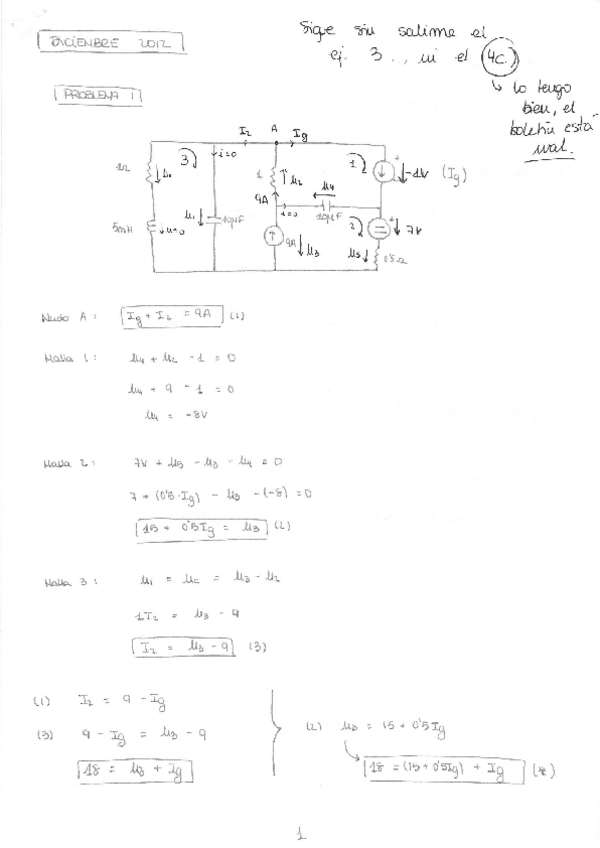 DICIEMBRE 2012
Sigue sin salirme el
ej. 3., ni el 4c.)
↳ lo tengo
bien, el
boletín está
mal.
PROBLEMA 1
I₂ A Ig
3 i=0 1 -1V (Ig)
1Ω 1 μ₂ μ₄
9A i=0 10μF
5mH μ=0 μ₁ 10μF 9A μ₃ 2 7V
μ₅ 0'5Ω
Nudo A: Ig + I₂ = 9A (1)
Malla 1: μ₄ + μ₂ - 1 = 0
μ₄ + 9 - 1 = 0
μ₄ = -8V
Malla 2: 7V + μ₅ - μ₃ - μ₄ = 0
7 + (0'5·Ig) - μ₃ - (-8) = 0
15 + 0'5Ig = μ₃ (2)
Malla 3: μ₁ = μ₆ = μ₃ - μ₂
1I₂ = μ₃ - 9
I₂ = μ₃ - 9 (3)
(1) I₂ = 9 - Ig
(3) 9 - Ig = μ₃ - 9
18 = μ₃ + Ig
(2) μ₃ = 15 + 0'5Ig
18 = (15 + 0'5Ig) + Ig (*)
1